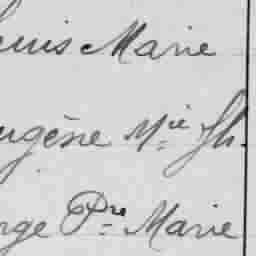 ouis Marie
ugène Mie Jh.
rge Pre Marie